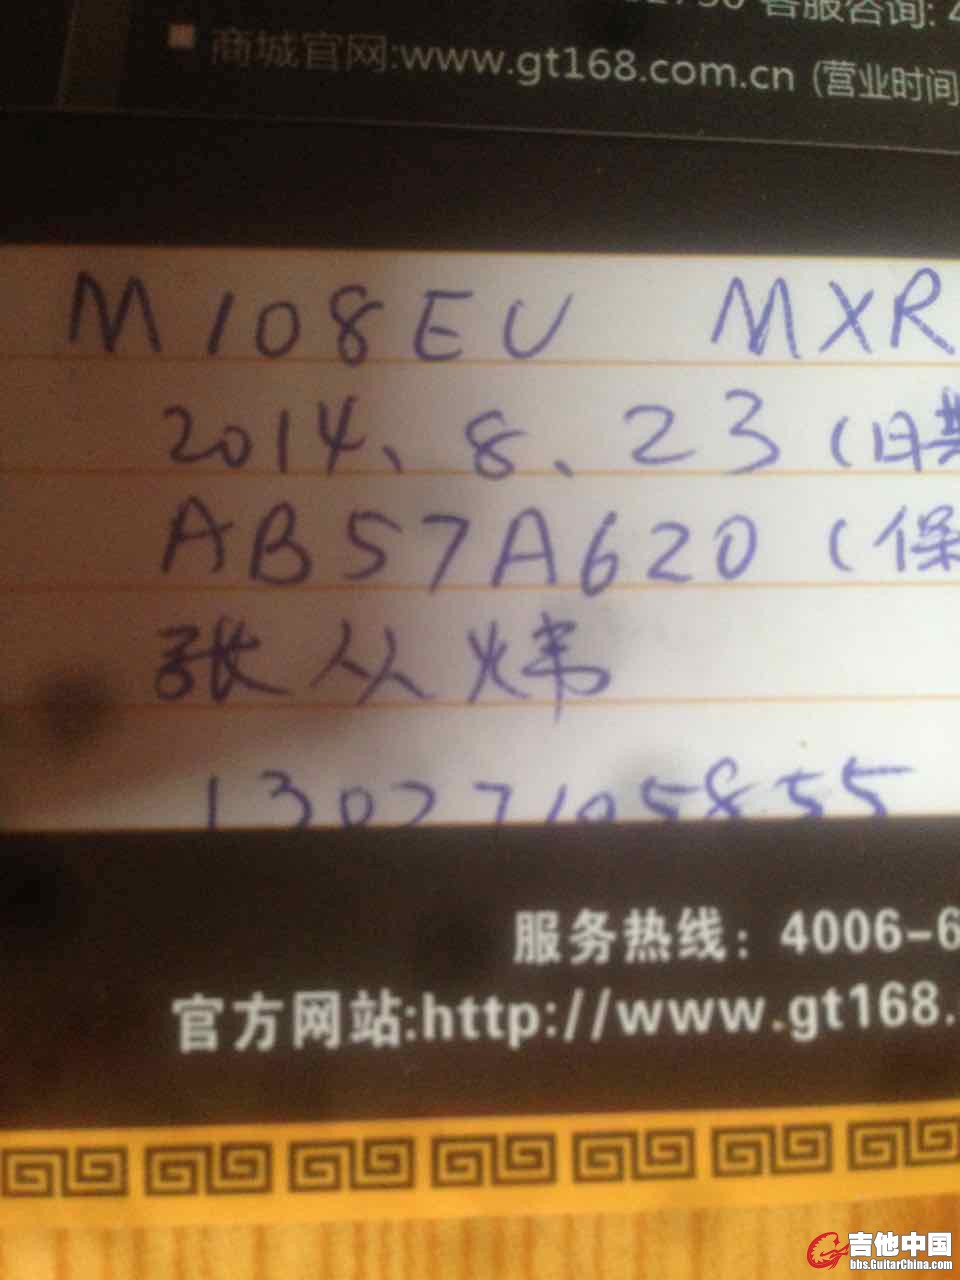 客服咨询:
商城官网:www.gt168.com.cn (营业时间
M108EU MXR
2014、8、23 (日期
AB57A620 (保
张从炜
13027105855
服务热线: 4006-6
官方网站:http://www.gt168.
吉他中国
bbs.GuitarChina.com